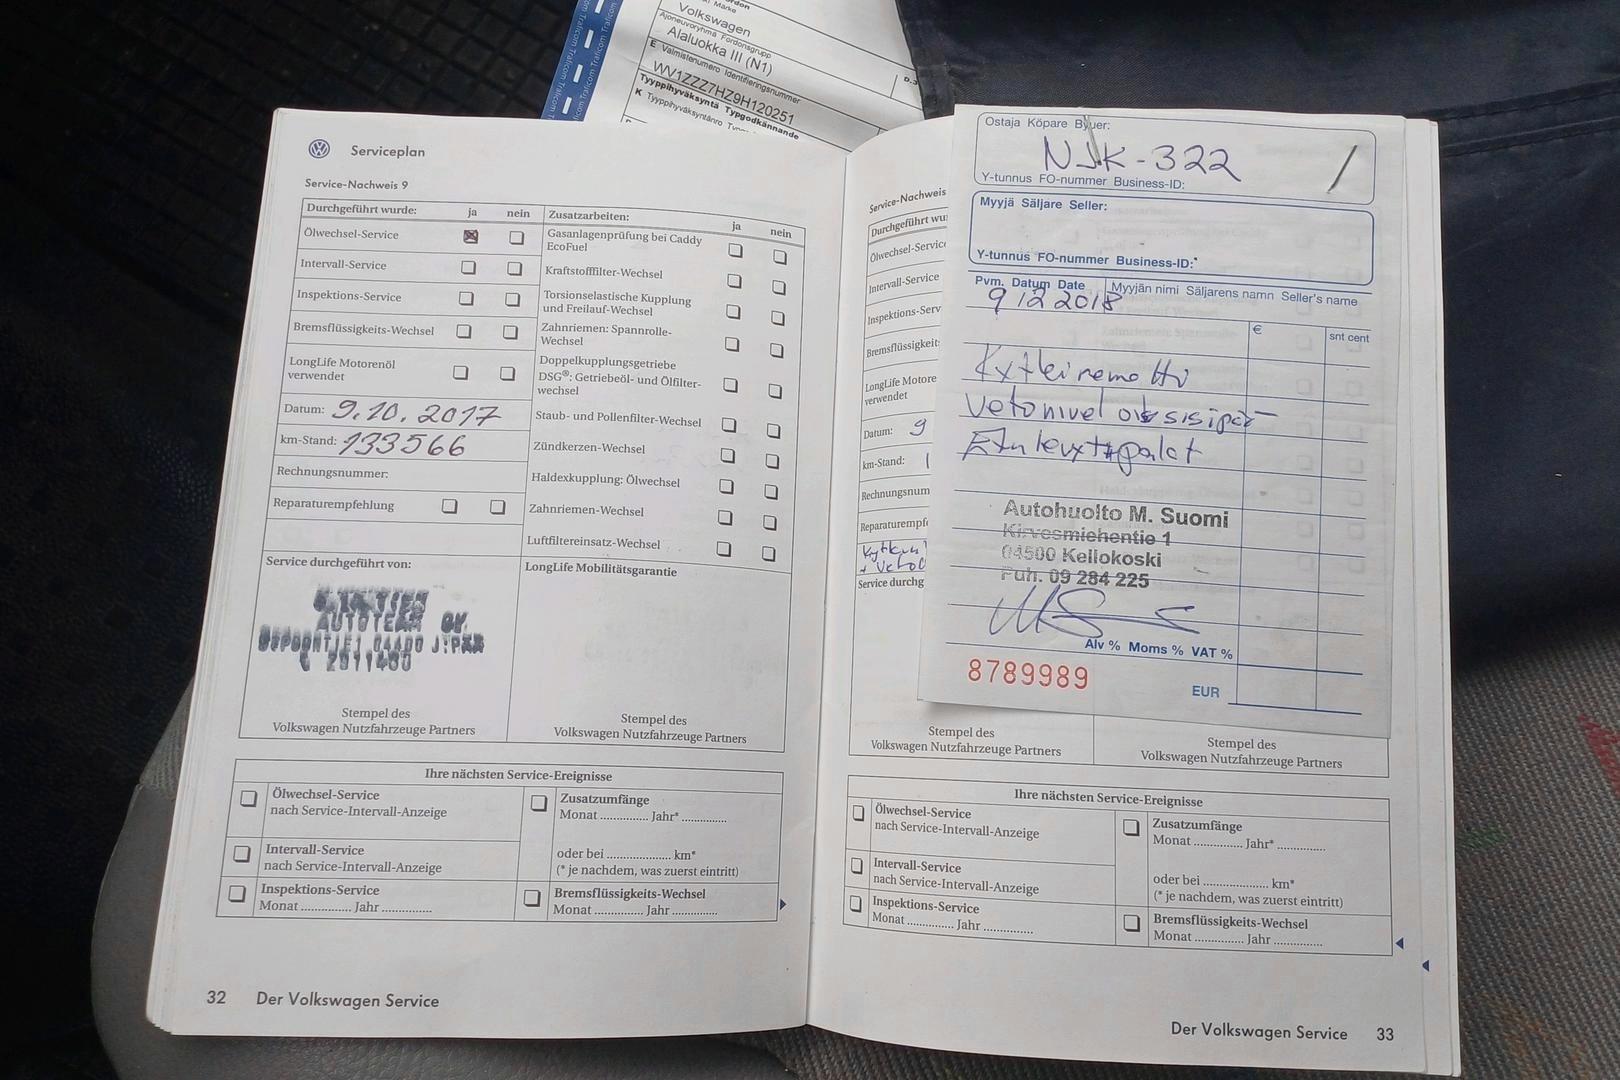 Märke
Volkswagen
Ajoneuvoryhmä Fordonsgrupp
Alaluokka III (N1)
E Valmistenumero Identifieringsnummer
WV1ZZZ7HZ9H120251
Tyyppihyväksyntä Typgodkännande
K Tyyppihyväksyntänro
Traficom Traficom Traficom
Serviceplan
Service-Nachweis 9
Durchgeführt wurde: ja nein
Ölwechsel-Service
Intervall-Service
Inspektions-Service
Bremsflüssigkeits-Wechsel
LongLife Motorenöl
verwendet
Datum: 9.10.2017
km-Stand: 133566
Rechnungsnummer:
Reparaturempfehlung
Zusatzarbeiten: ja nein
Gasanlagenprüfung bei Caddy
EcoFuel
Kraftstofffilter-Wechsel
Torsionselastische Kupplung
und Freilauf-Wechsel
Zahnriemen: Spannrolle-
Wechsel
Doppelkupplungsgetriebe
DSG®: Getriebeöl- und Ölfilter-
wechsel
Staub- und Pollenfilter-Wechsel
Zündkerzen-Wechsel
Haldexkupplung: Ölwechsel
Zahnriemen-Wechsel
Luftfiltereinsatz-Wechsel
Service durchgeführt von:
AUTOTEAM OY
2911400
Stempel des
Volkswagen Nutzfahrzeuge Partners
LongLife Mobilitätsgarantie
Stempel des
Volkswagen Nutzfahrzeuge Partners
Ihre nächsten Service-Ereignisse
Ölwechsel-Service
nach Service-Intervall-Anzeige
Intervall-Service
nach Service-Intervall-Anzeige
Inspektions-Service
Monat .............. Jahr ..............
Zusatzumfänge
Monat .............. Jahr* .............
oder bei .................... km*
(* je nachdem, was zuerst eintritt)
Bremsflüssigkeits-Wechsel
Monat .............. Jahr .............
32 Der Volkswagen Service
Service-Nachweis
Durchgeführt wu
Ölwechsel-Service
Intervall-Service
Inspektions-Serv
Bremsflüssigkeit
LongLife Motore
verwendet
Datum: 9
km-Stand: 1
Rechnungsnum
Reparaturempf
Service durchg
Ostaja Köpare Buyer:
NJK-322
Y-tunnus FO-nummer Business-ID:
Myyjä Säljare Seller:
Y-tunnus FO-nummer Business-ID:
Pvm. Datum Date Myyjän nimi Säljarens namn Seller's name
9 12 2018
€ snt cent
Kytkinremotti
Vetonivel oik sisäpää
Etulevyt+palat
Autohuolto M. Suomi
Kirvesmiehentie 1
04500 Kellokoski
Puh. 09 284 225
Alv % Moms % VAT %
8789989
EUR
Stempel des
Volkswagen Nutzfahrzeuge Partners
Stempel des
Volkswagen Nutzfahrzeuge Partners
Ihre nächsten Service-Ereignisse
Ölwechsel-Service
nach Service-Intervall-Anzeige
Intervall-Service
nach Service-Intervall-Anzeige
Inspektions-Service
Monat .............. Jahr ..............
Zusatzumfänge
Monat .............. Jahr* .............
oder bei .................... km*
(* je nachdem, was zuerst eintritt)
Bremsflüssigkeits-Wechsel
Monat .............. Jahr ..............
Der Volkswagen Service 33